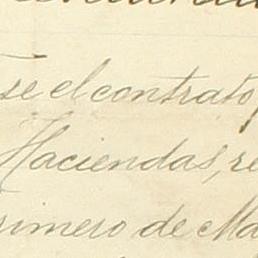 se el contrato
Haciendas, re
rimero de Ma